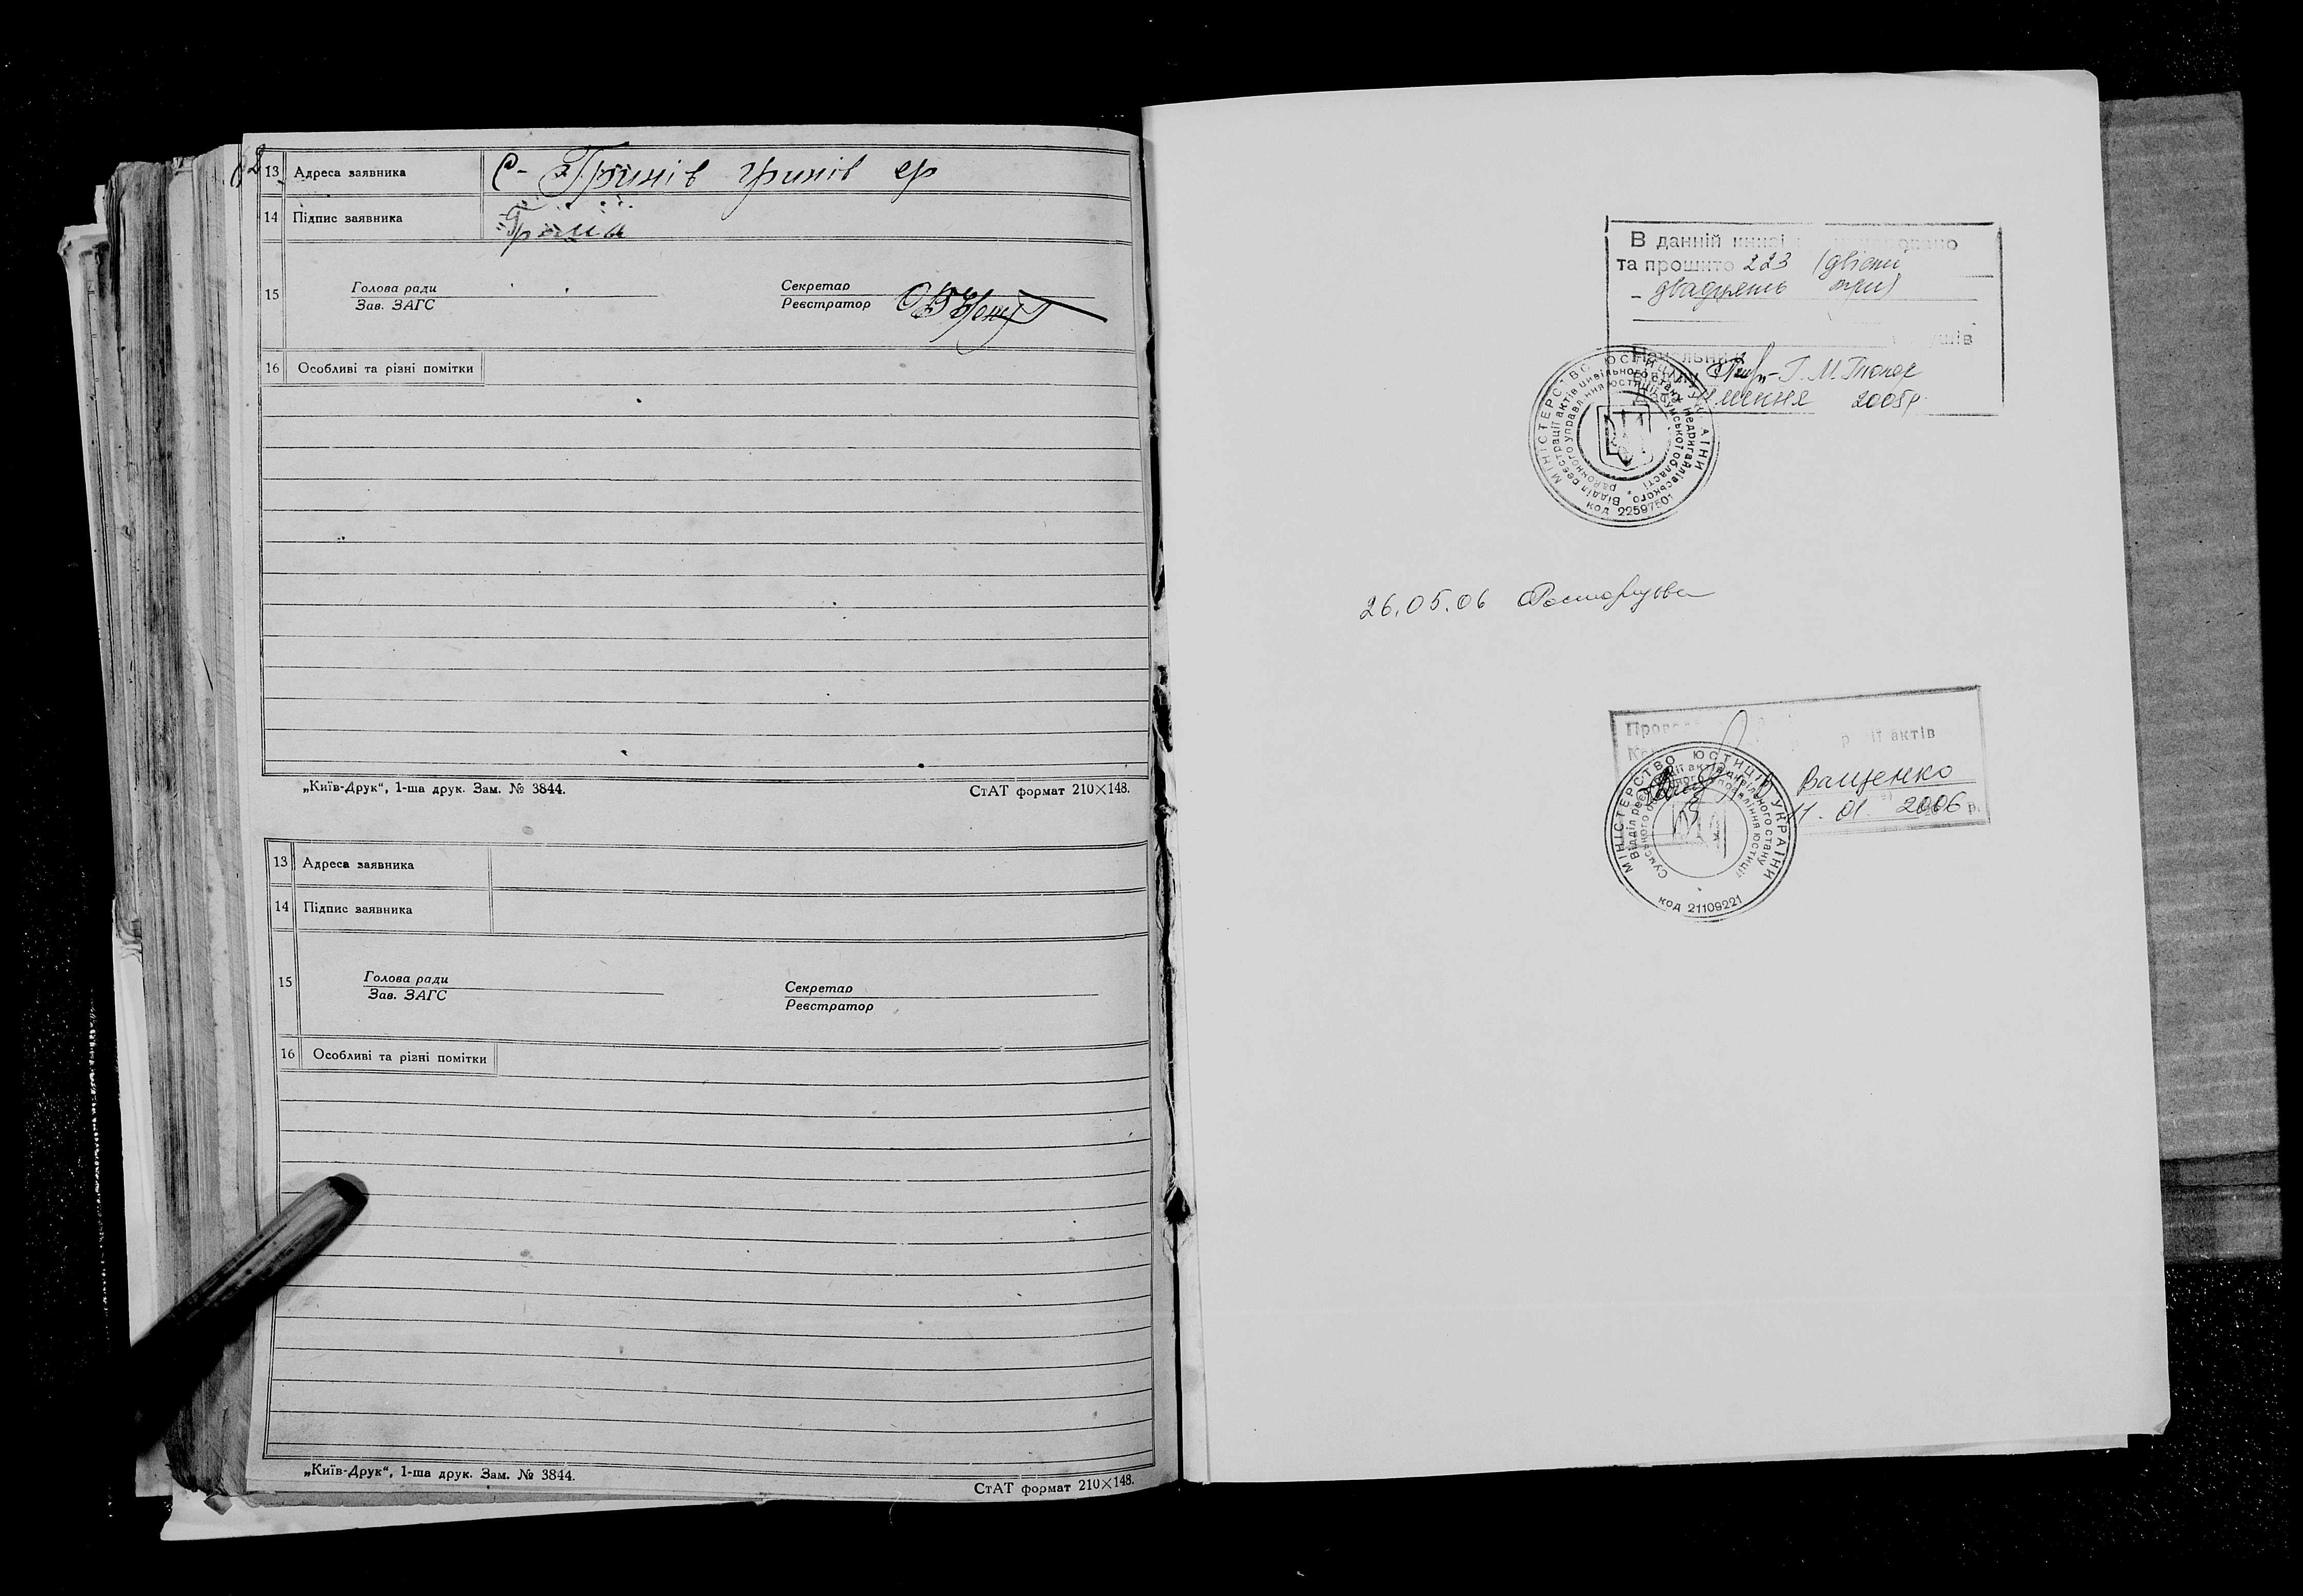 13 Адреса заявника С- Гринів гринів ср
14 Підпис заявника
15 Голова ради Секретар
Зав. ЗАГС Реєстратор
16 Особливі та різні помітки
„Київ-Друк“, 1-ша друк. Зам. № 3844. СтАТ формат 210×148.
13 Адреса заявника
14 Підпис заявника
15 Голова ради Секретар
Зав. ЗАГС Реєстратор
16 Особливі та різні помітки
„Київ-Друк“, 1-ша друк. Зам. № 3844. СтАТ формат 210×148.
В данній книзі
та прошито 223 (двісти
двадцять три)
Начальник
2005р.
МІНІСТЕРСТВО ЮСТИЦІЇ УКРАЇНИ
Відділ реєстрації актів цивільного стану Недригайлівського
районного управління юстиції Сумської області
код 22597501
26.05.06
актів
Ващенко
11. 01. 2006 р.
МІНІСТЕРСТВО ЮСТИЦІЇ УКРАЇНИ
Відділ реєстрації актів цивільного стану
Сумського обласного управління юстиції
код 21109221